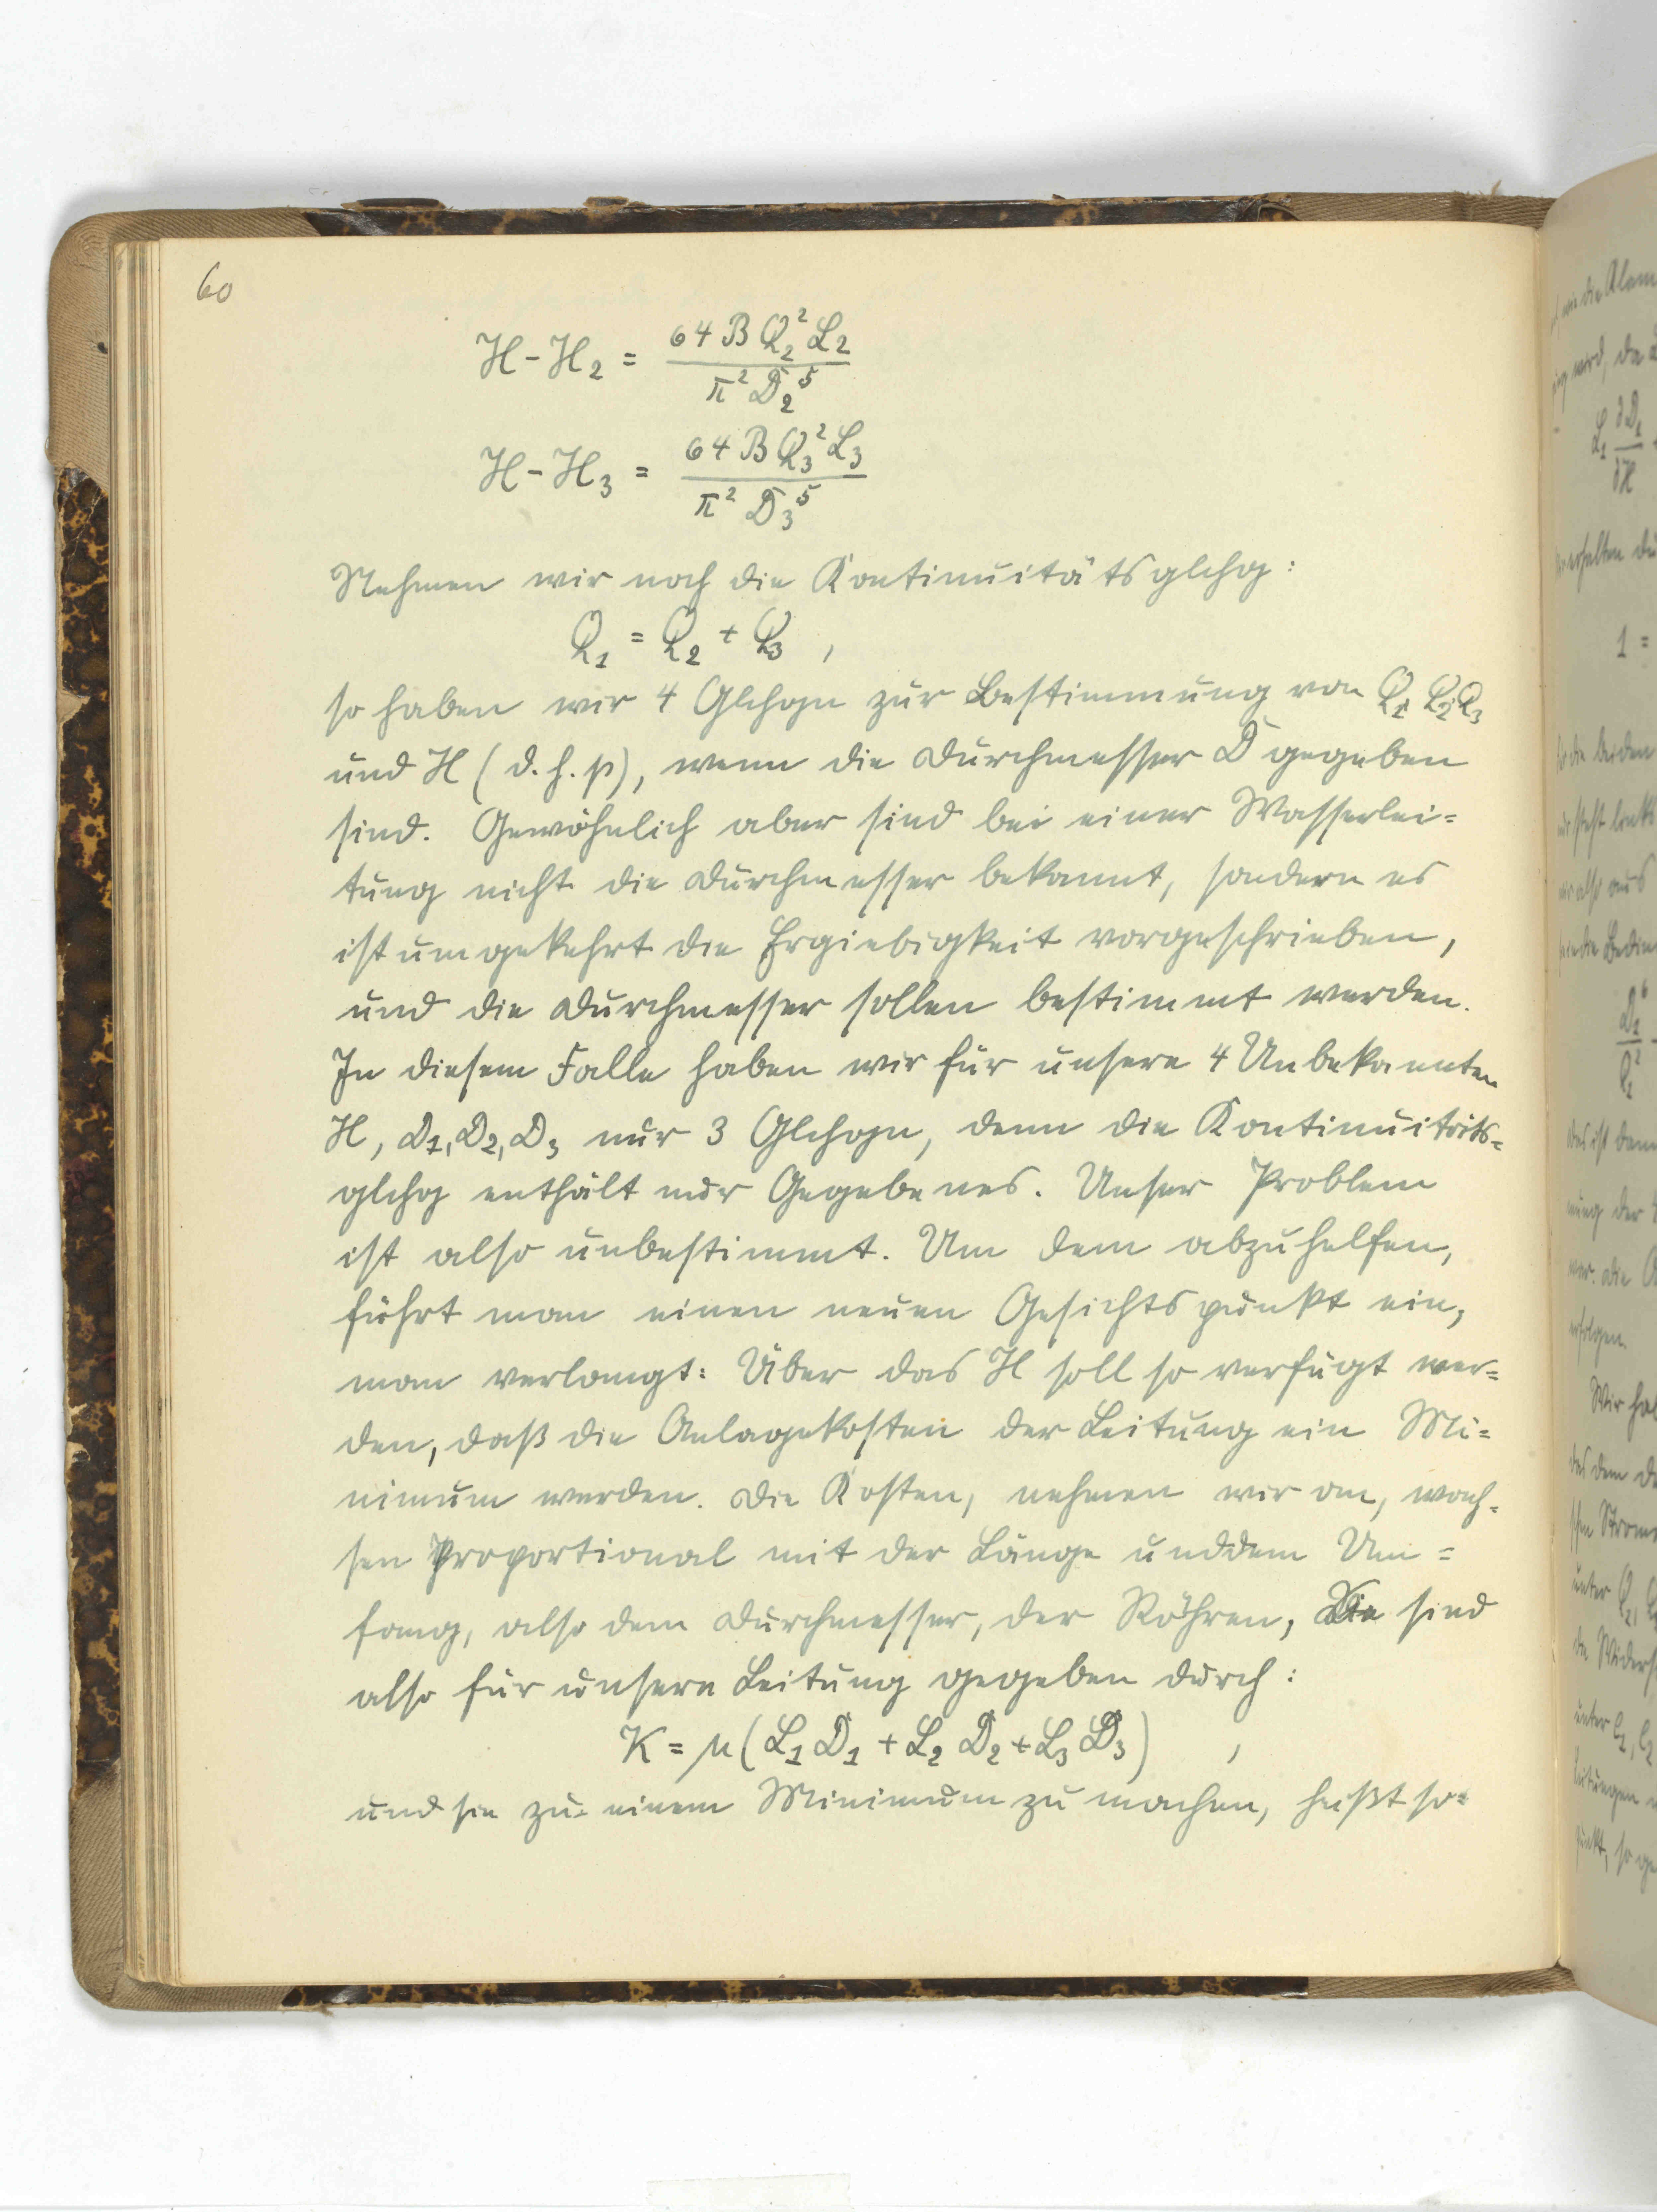 60
H - H₂ = 64 B Q₂² L₂ / π² D₂⁵
H - H₃ = 64 B Q₃² L₃ / π² D₃⁵
Nehmen wir noch die Kontinuitätsglchg:
Q₁ = Q₂ + Q₃ ,
so haben wir 4 Glchgn zur Bestimmung von Q₁ Q₂ Q₃
und H (d.h. p), wenn die Durchmesser D gegeben
sind. Gewöhnlich aber sind bei einer Wasserlei=
tung nicht die Durchmesser bekannt, sondern es
ist umgekehrt die Ergiebigkeit vorgeschrieben,
und die Durchmesser sollen bestimmt werden.
In diesem Falle haben wir für unsere 4 Unbekannten
H, D₁, D₂, D₃ nur 3 Glchgn, denn die Kontinuitäts=
glchg enthält nur Gegebenes. Unser Problem
ist also unbestimmt. Um dem abzuhelfen,
führt man einen neuen Gesichtspunkt ein,
man verlangt: Über das H soll so verfügt wer=
den, daß die Anlagekosten der Leitung ein Mi=
nimum werden. Die Kosten, nehmen wir an, wach=
sen proportional mit der Länge und dem Um=
fang, also dem Durchmesser, der Röhren, Sie sind
also für unsere Leitung gegeben durch:
K = μ (L₁ D₁ + L₂ D₂ + L₃ D₃) ,
und sie zu einem Minimum zu machen, heißt so=